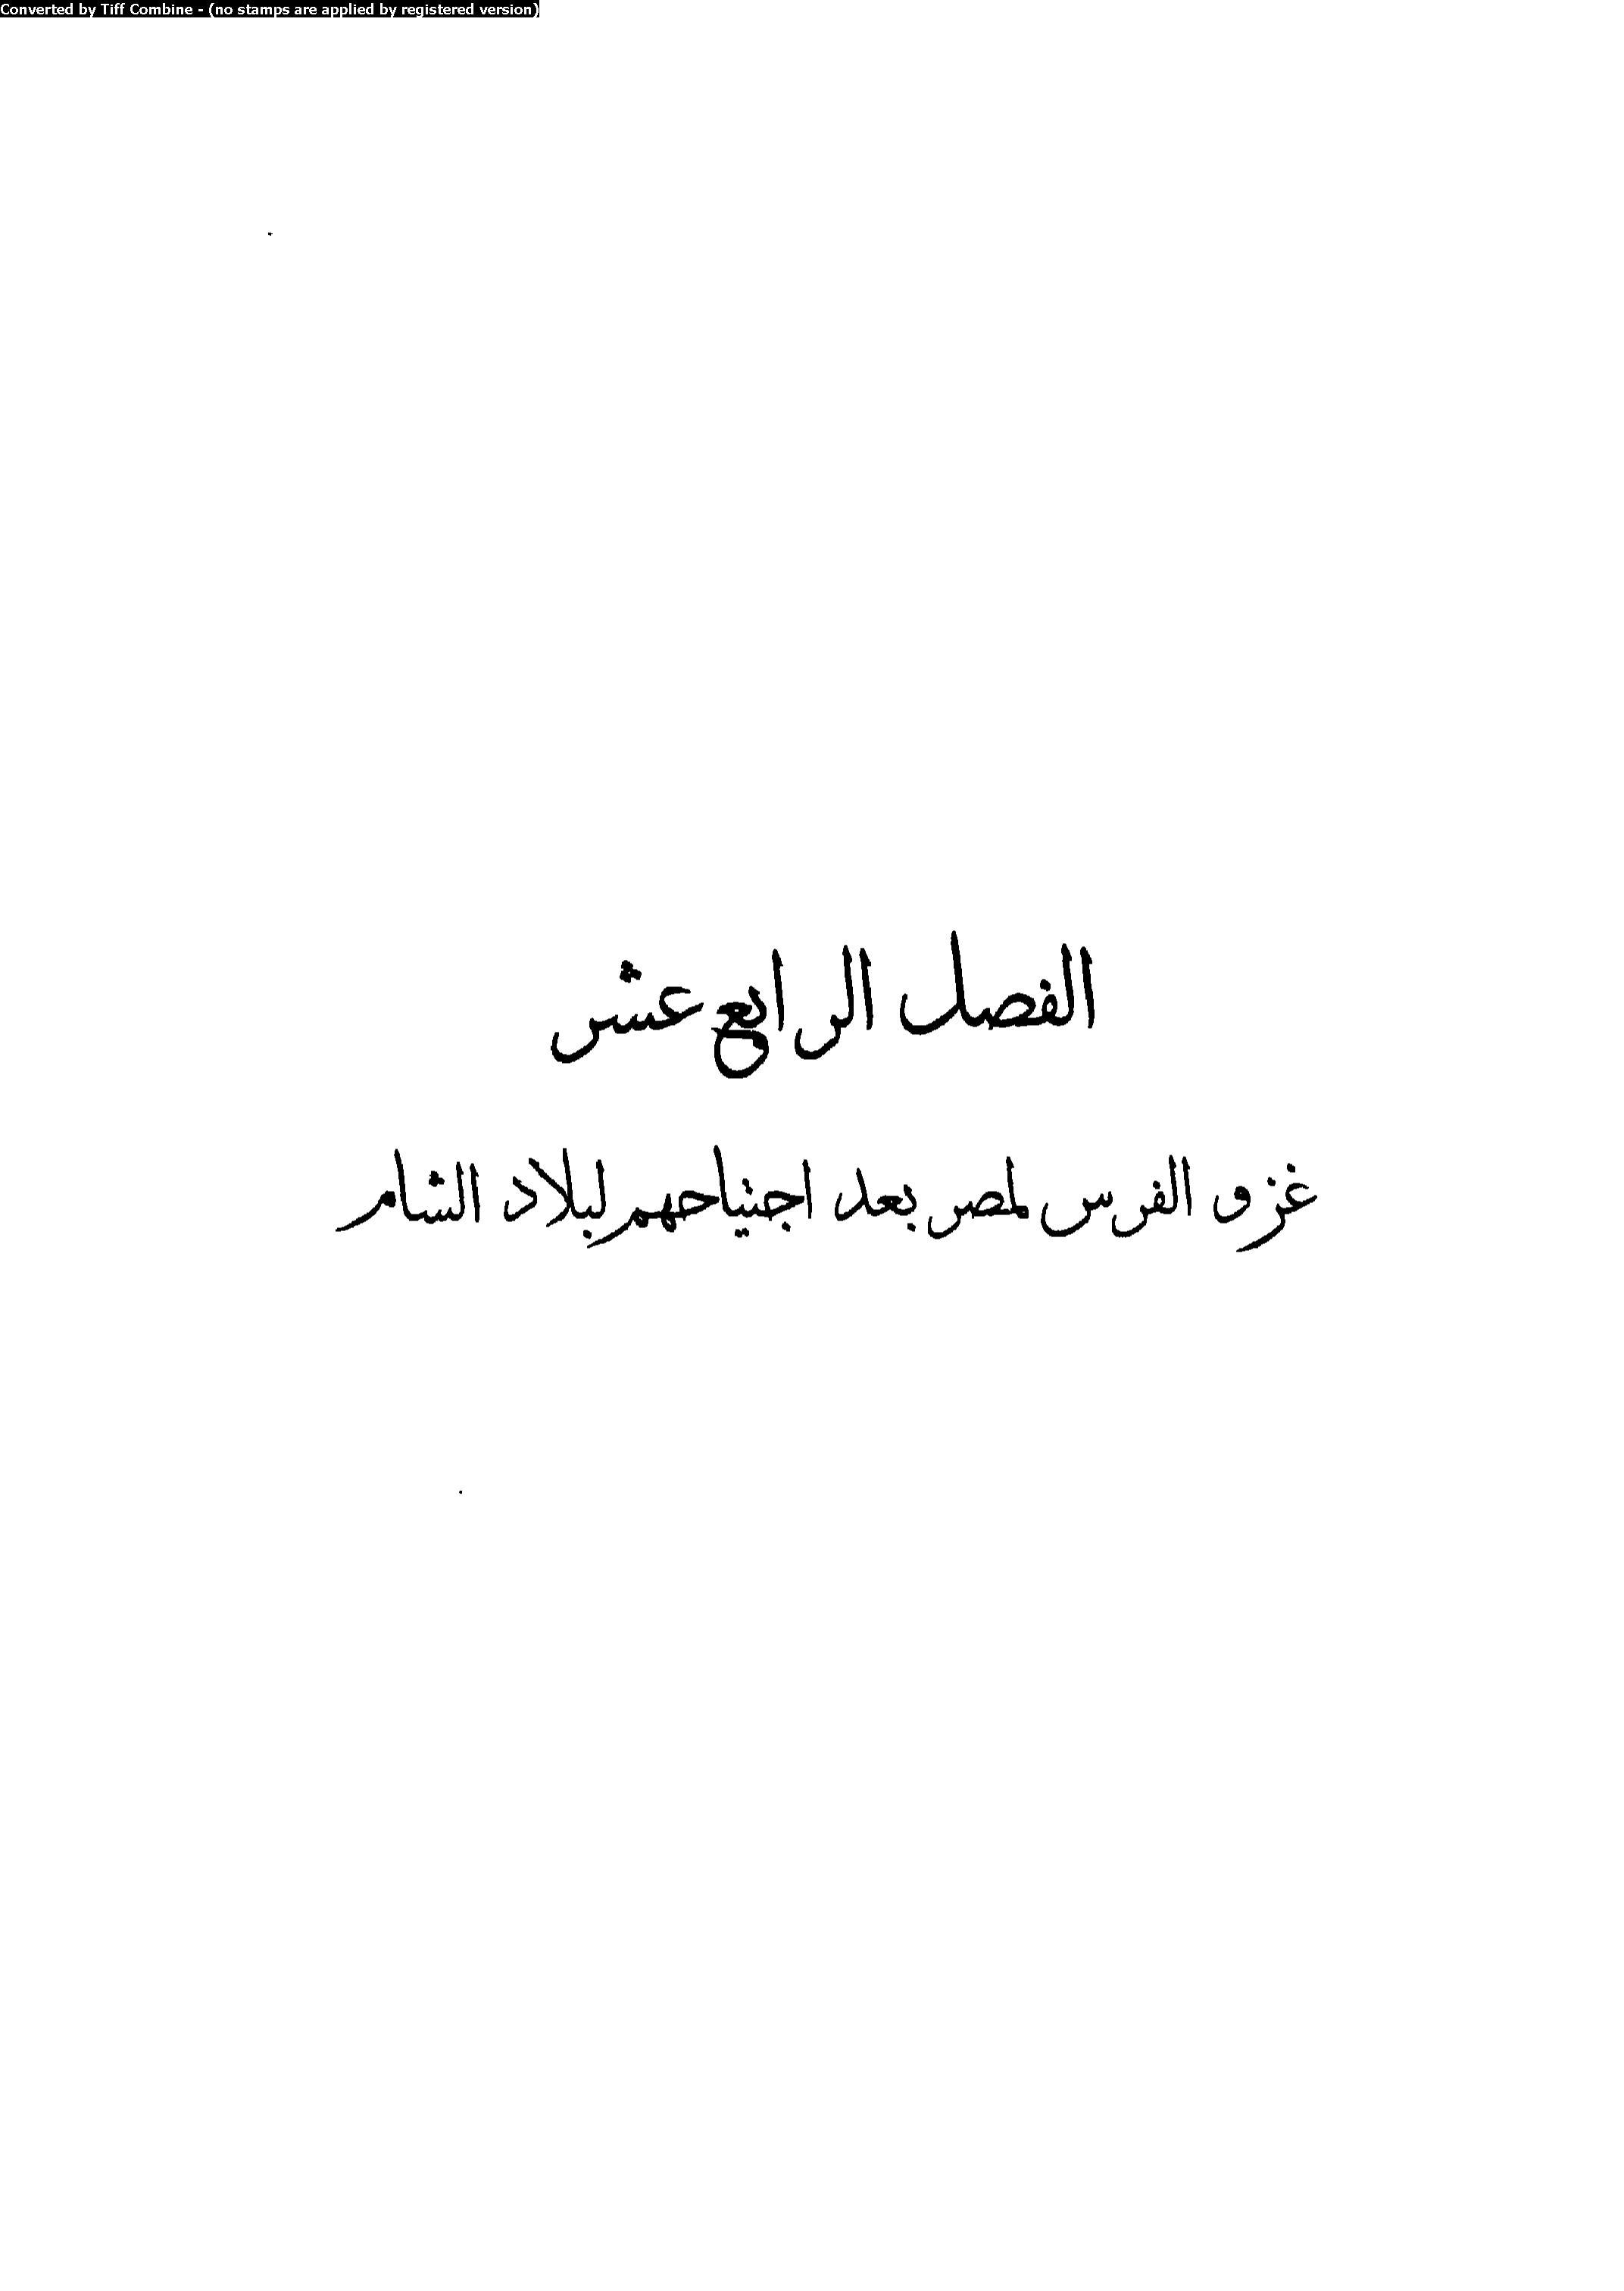 Converted by Tiff Combine - (no stamps are applied by registered version)
الفصل الرابع عشر
غزو الفرس لمصر بعد اجتياحهم لبلاد الشام